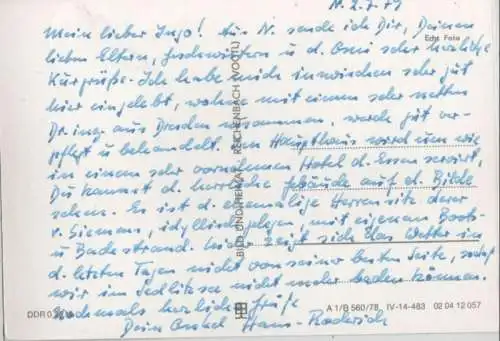 N. 2.7.79
Mein lieber Ingo! Aus N. sende ich Dir, Deinen
Echt Foto
lieben Eltern, Geschwistern u. d. Omi sehr herzliche
Kurgrüße. Ich habe mich inzwischen sehr gut
hier eingelebt, wohne mit einem sehr netten
Dr.-Ing. aus Dresden zusammen, werde gut ver-
pflegt u. behandelt. Im Haupthaus wird uns wie
in einem sehr vornehmen Hotel d. Essen serviert,
Du kannst d. herrliche Gebäude auf d. Bilde
sehen. Es ist d. ehemalige Herrensitz derer
v. Siemens, idyllisch gelegen, mit eigenem Boots-
u. Badestrand. Leider zeigt sich das Wetter in
d. letzten Tagen nicht von seiner besten Seite, sodaß
wir im Sedlitzsee nicht mehr baden können.
Nochmals herzliche Grüße
Dein Onkel Hans-Roderich
BILD UND HEIMAT REICHENBACH (VOGTL)
DDR 0
A 1/B 560/78 IV-14-483 02 04 12 057